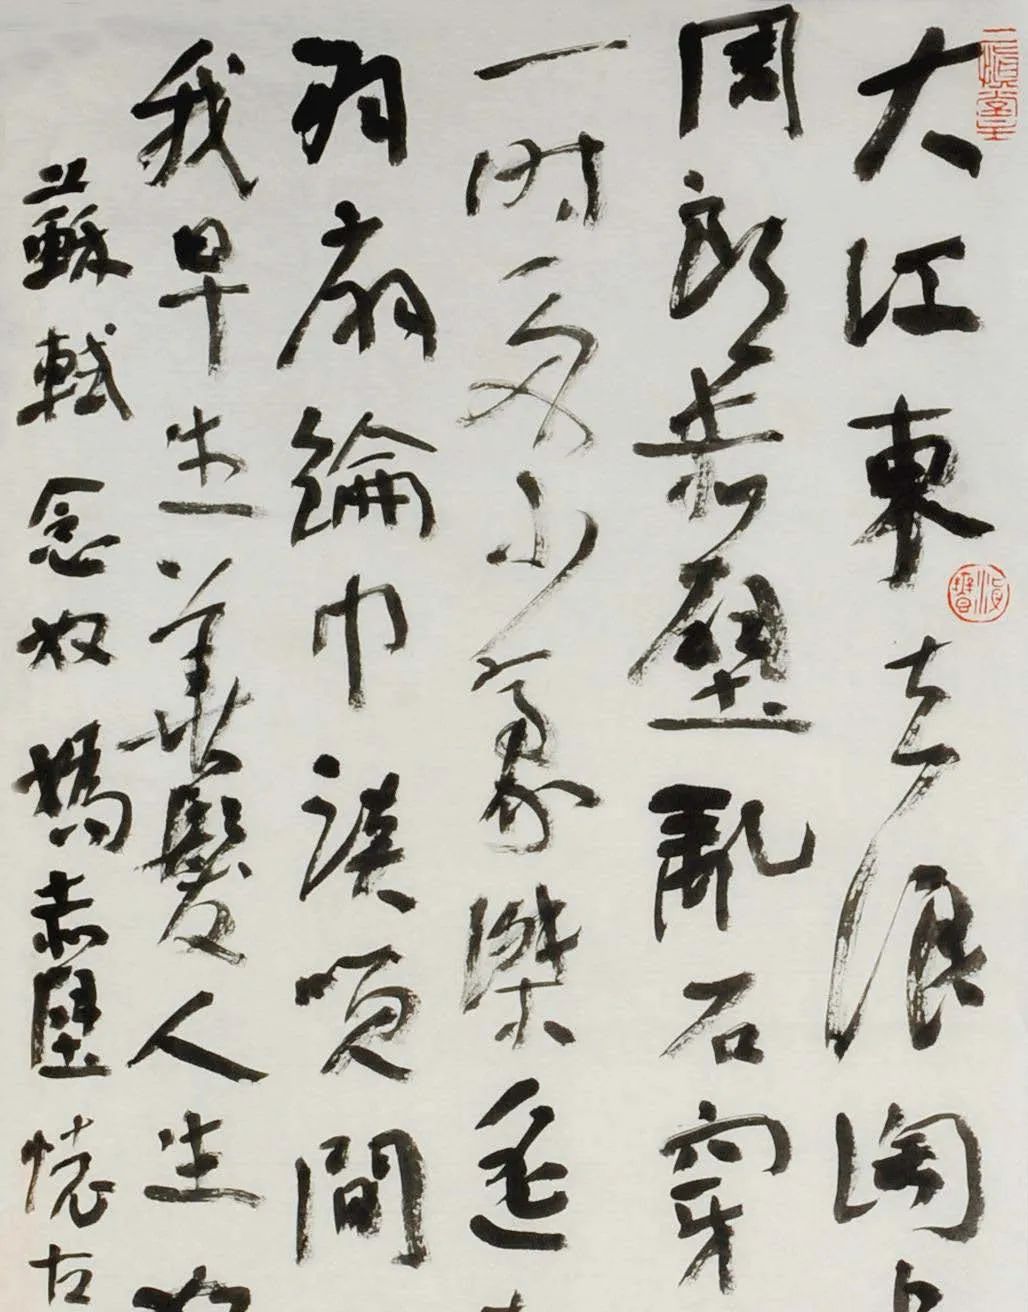 大江東去浪淘
周郎赤壁亂石穿
一時多少豪傑遙
羽扇綸巾談笑間
我早生華髮人生如
蘇軾念奴嬌赤壁懷古